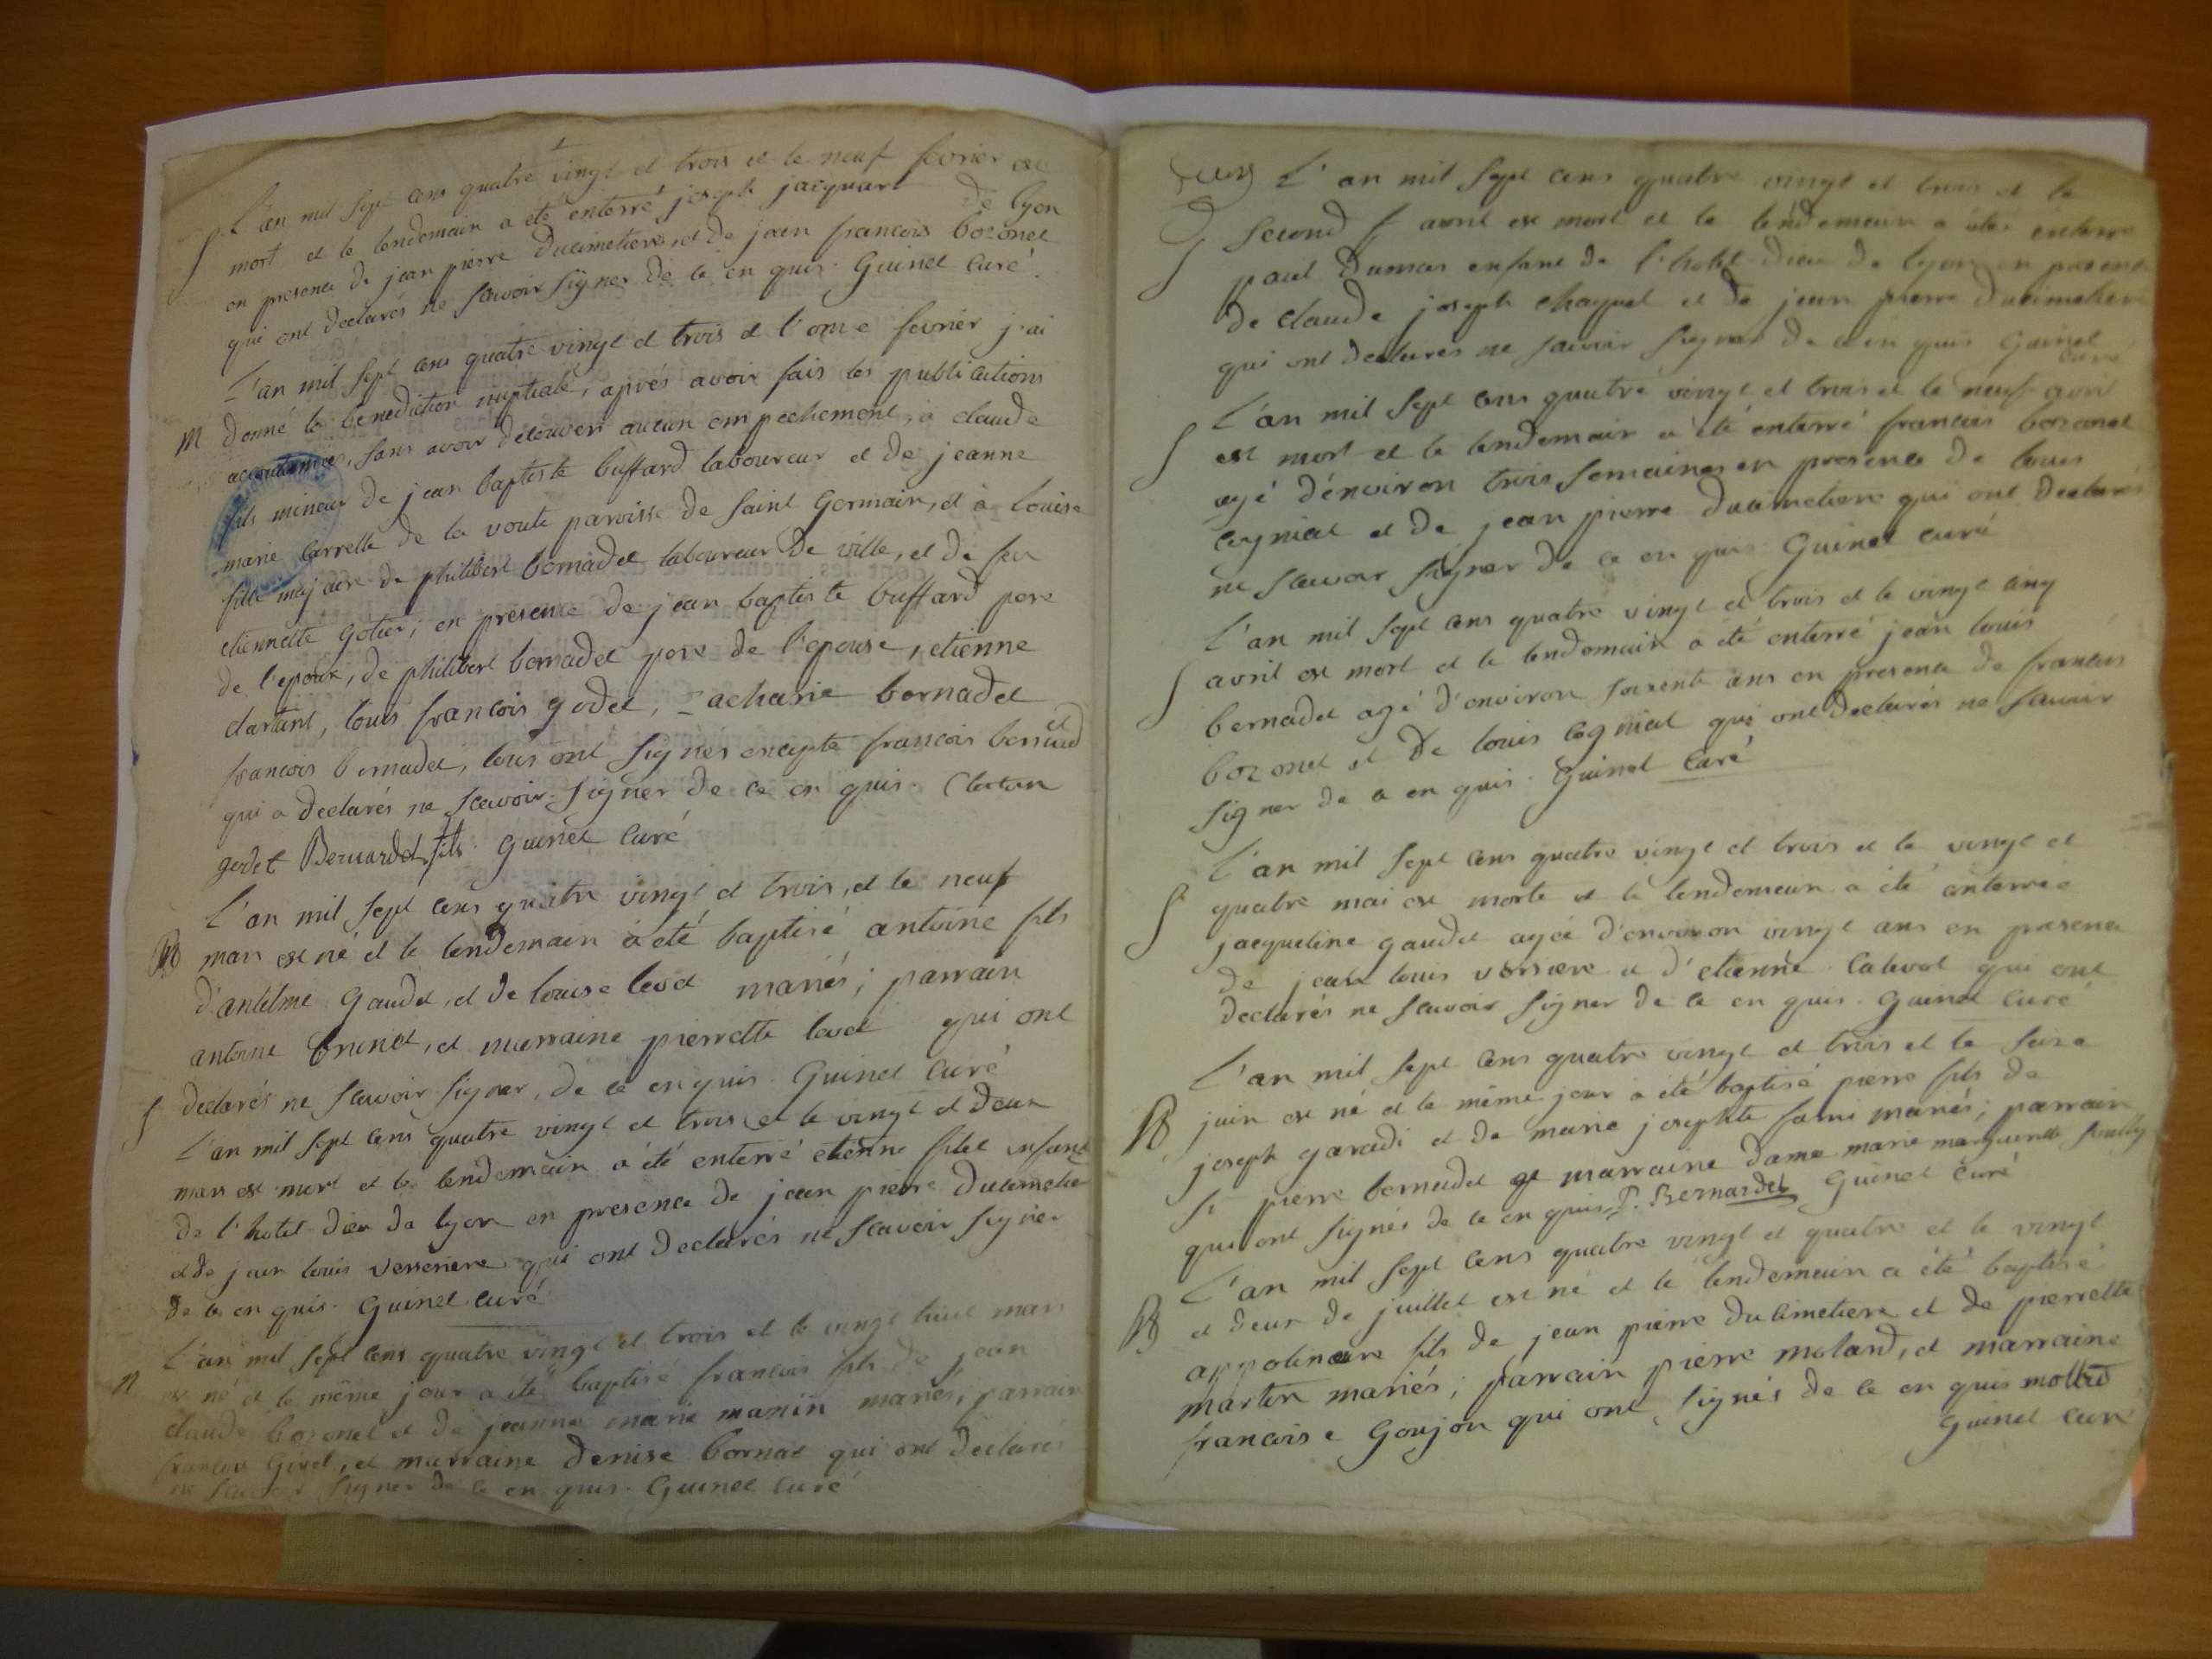 L'an mil sept cens quatre vingt et trois et le neuf fevrier est
S mort et le lendemain a été enterré joseph jacquart de lyon
en presence de jean pierre Ducimetiere, et de jean francois bozonet
qui ont declarés ne scavoir signer de ce en quis. Guinet curé.
L'an mil sept cens quatre vingt et trois et l'onze fevrier j'ai
M donné la benediction nuptiale, aprés avoir fais les publications
accoutumées, sans avoir decouvert aucun empechement, à claude
fils mineur de jean baptiste buffard laboureur et de jeanne
marie carrelle de la voute paroisse de saint germain, et à louise
fille majeure de philibert bernadet laboureur de ville, et de feu
etiennette gotier; en presence de jean baptiste buffard pere
de l'epoux, de philibert bernadet pere de l'epouse, etienne
clartant, louis francois godet, zacharie bernadet
francois bernadet, tous ont signés excepte francois bernadet
qui a declarés ne scavoir signer de ce en quis. Clatan
godet Bernardet fils. Guinet Curé
L'an mil sept cens quatre vingt et trois, et le neuf
B mars est né et le lendemain a été baptisé antoine fils
d'antelme Gaudet, et de louise levet mariés; parrain
antoine brunet, et marraine pierrette levet qui ont
declarés ne scavoir signer, de ce en quis. Guinet Curé
S L'an mil sept cens quatre vingt et trois et le vingt et deux
mars est mort et le lendemain a été enterré etienne filet enfant
de l'hotel-dieu de lyon en presence de jean pierre Ducimetiere
et de jean louis verseriere qui ont declarés ne scavoir signer
de ce en quis. Guinet curé
L'an mil sept cens quatre vingt et trois et le vingt huit mars
est né et le même jour a été baptisé francois fils de jean
claude bozonet et de jeanne marie manin mariés; parrain
francois Givet, et marraine denise bornat qui ont declarés
ne scavoir signer de ce en quis. Guinet curé
deux L'an mil sept cens quatre vingt et trois et le
second avril est mort et le lendemain a été enterré
S paul dumas enfant de l'hotel-dieu de lyon en presence
de claude joseph chaquet et de jean pierre ducimetiere
qui ont declarés ne scavoir signer de ce en quis Guinet
curé
L'an mil sept cens quatre vingt et trois et le neuf avril
S est mort et le lendemain a été enterré francois bozonet
agé d'environ trois semaines en presence de louis
cogniat et de jean pierre ducimetiere qui ont declarés
ne scavoir signer de ce en quis. Guinet curé
L'an mil sept cens quatre vingt et trois et le vingt cinq
S avril est mort et le lendemain a été enterré jean louis
bernadet agé d'environ soixente ans en presence de francois
bozonet et de louis cogniat qui ont declarés ne scavoir
signer de ce en quis. Guinet Curé
L'an mil sept cens quatre vingt et trois et le vingt et
S quatre mai est morte et le lendemain a été enterrée
jacqueline gaudet agée d'environ vingt ans en presence
de jean louis versiere et d'etienne calevet qui ont
declarés ne scavoir signer de ce en quis. Guinet Curé
L'an mil sept cens quatre vingt et trois et le seize
B juin est né et le même jour a été baptisé pierre fils de
joseph garadi et de marie josephte mariés; parrain
sr pierre bernadet et marraine dame marie marguerite
qui ont signés de ce en quis. P. Bernardet Guinet Curé
L'an mil sept cens quatre vingt et quatre et le vingt
B et deux de juillet est né et le lendemain a été baptisé
appolineare fils de jean pierre ducimetiere et de pierrette
martin mariés; parrain pierre moland, et marraine
francoise Goujon qui ont signés de ce en quis mollud
Guinet Cure